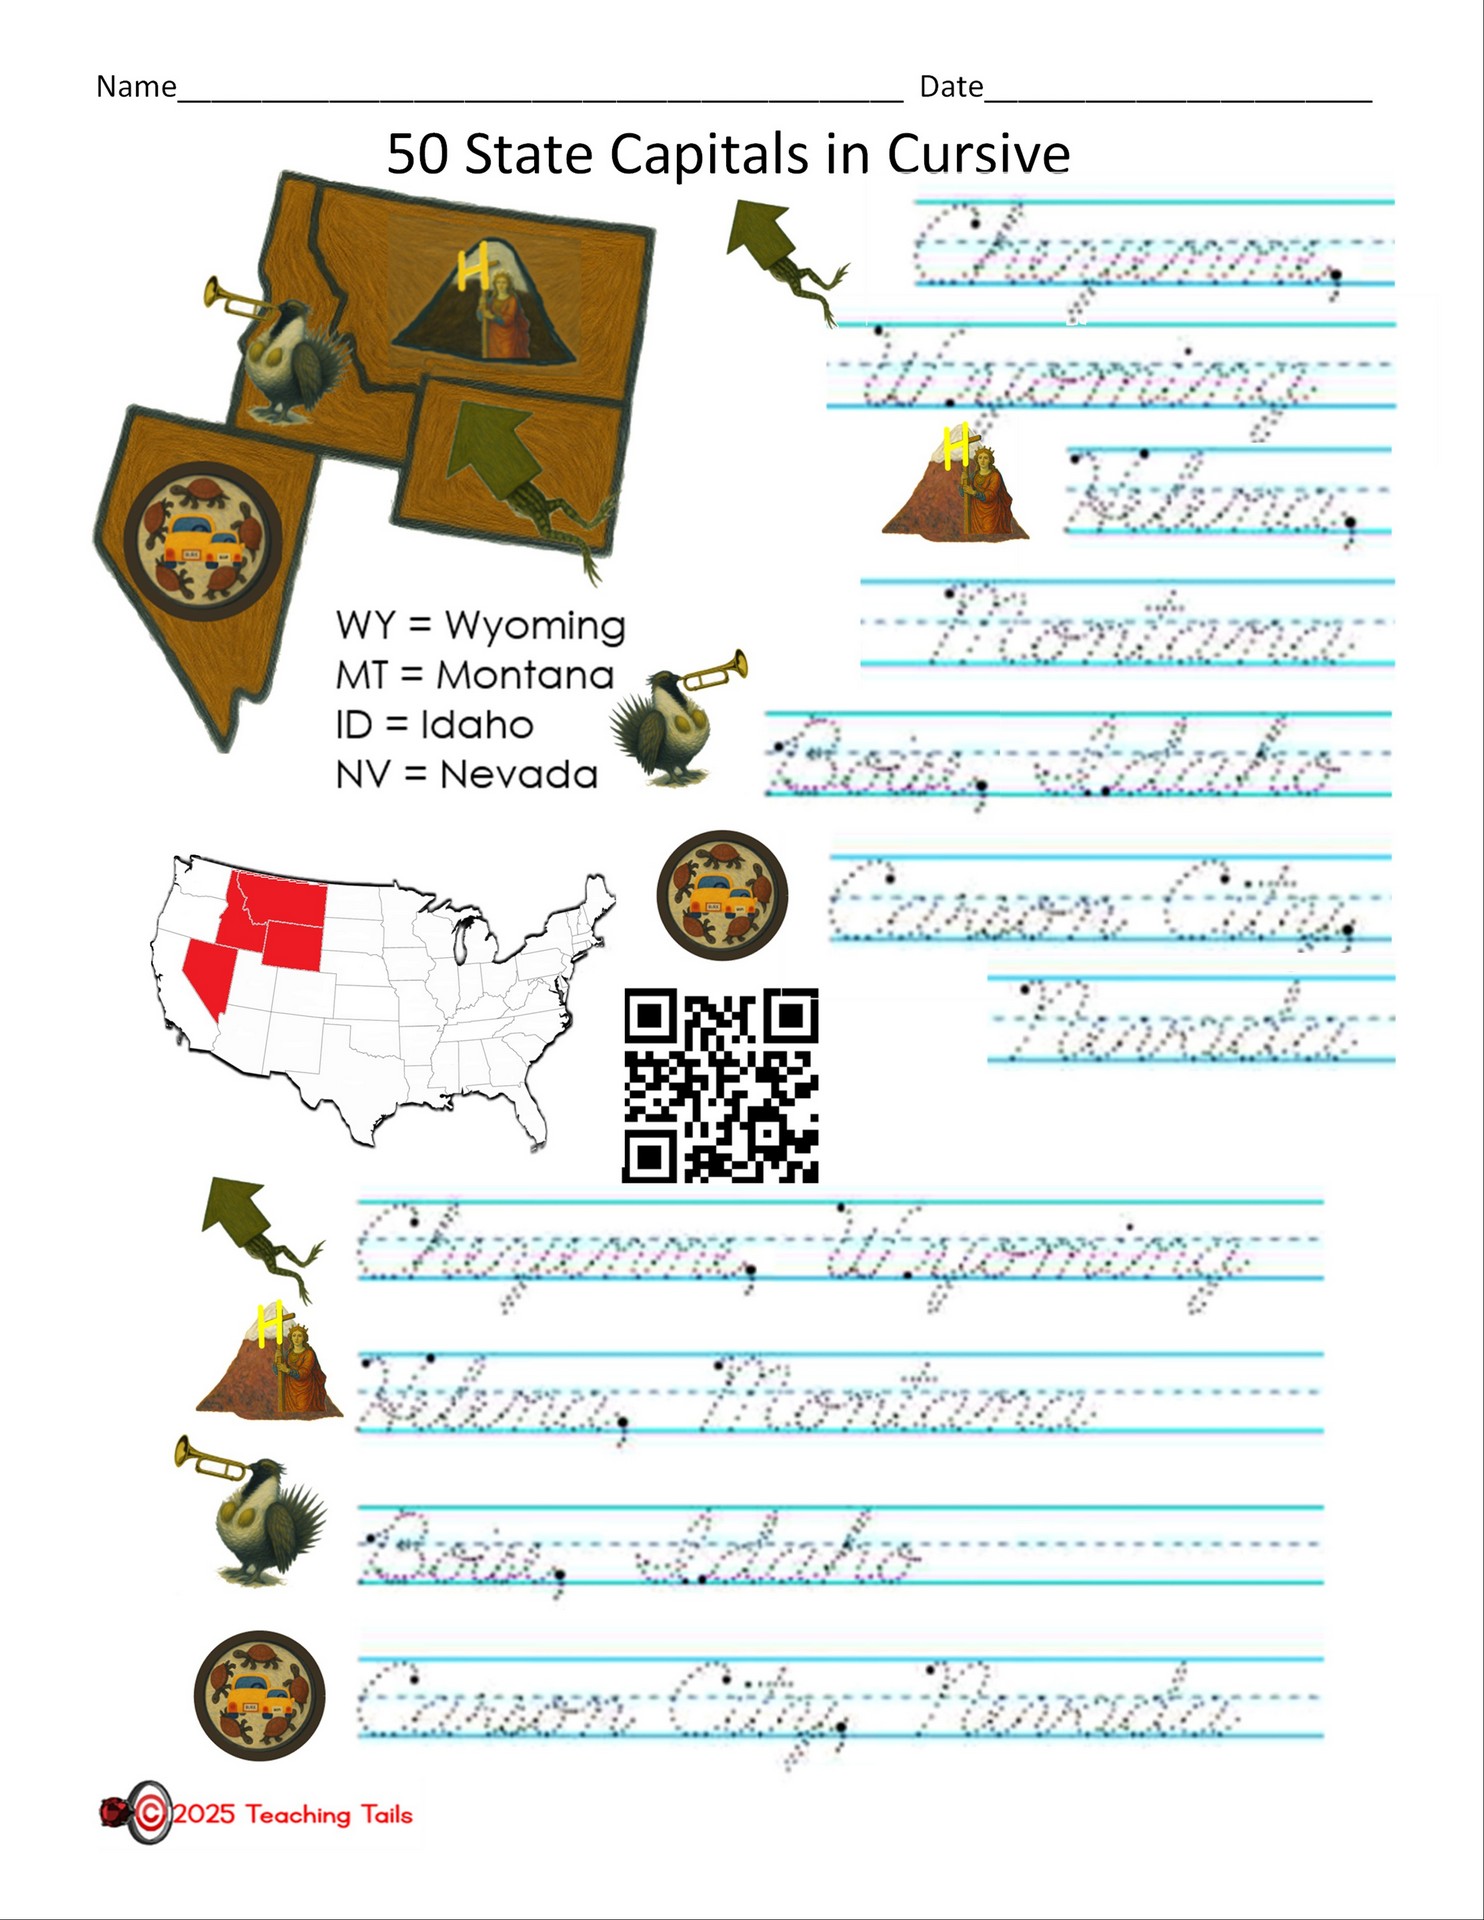 Name__________ Date__________
50 State Capitals in Cursive
H
Cheyenne,
Wyoming
H
Helena,
Montana
WY = Wyoming
MT = Montana
ID = Idaho
NV = Nevada
Boise, Idaho
Carson City,
Nevada
Cheyenne, Wyoming
H
Helena, Montana
Boise, Idaho
Carson City, Nevada
©2025 Teaching Tails